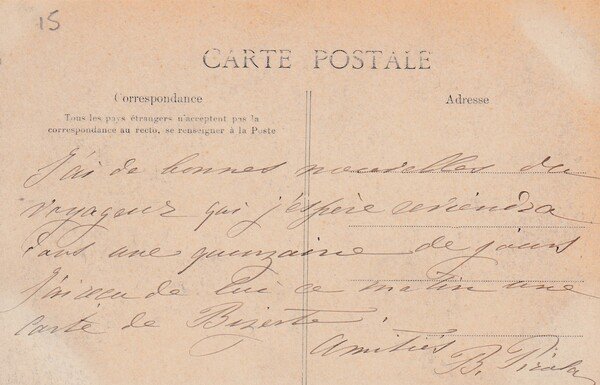 15
CARTE POSTALE
Correspondance
Adresse
Tous les pays étrangers n'acceptent pas la
correspondance au recto, se renseigner à la Poste
J'ai de bonnes nouvelles du
voyageur qui j'espère reviendra
dans une quinzaine de jours
J'ai recu de lui ce matin une
carte de Bizerte.
Amitiés B.